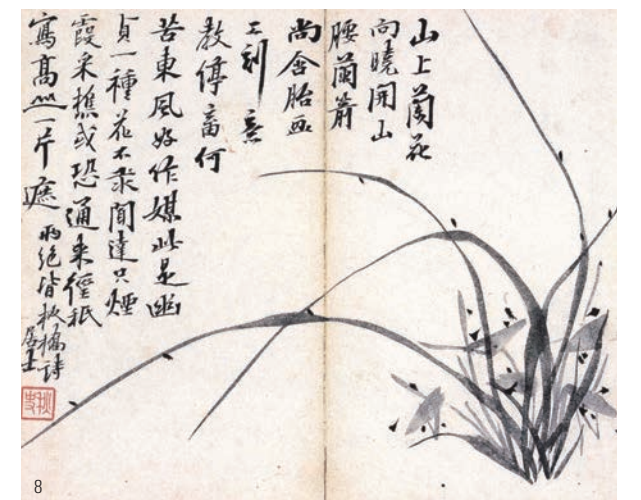 山上蘭花
向曉開山
腰蘭箭
尚含胎画
工刻意
教停畜何
苦東風好作媒此是幽
貞一種花不求聞達只煙
霞采樵或恐通来徑祇
寫高山一片遮
兩絕皆板橋詩
居士
8